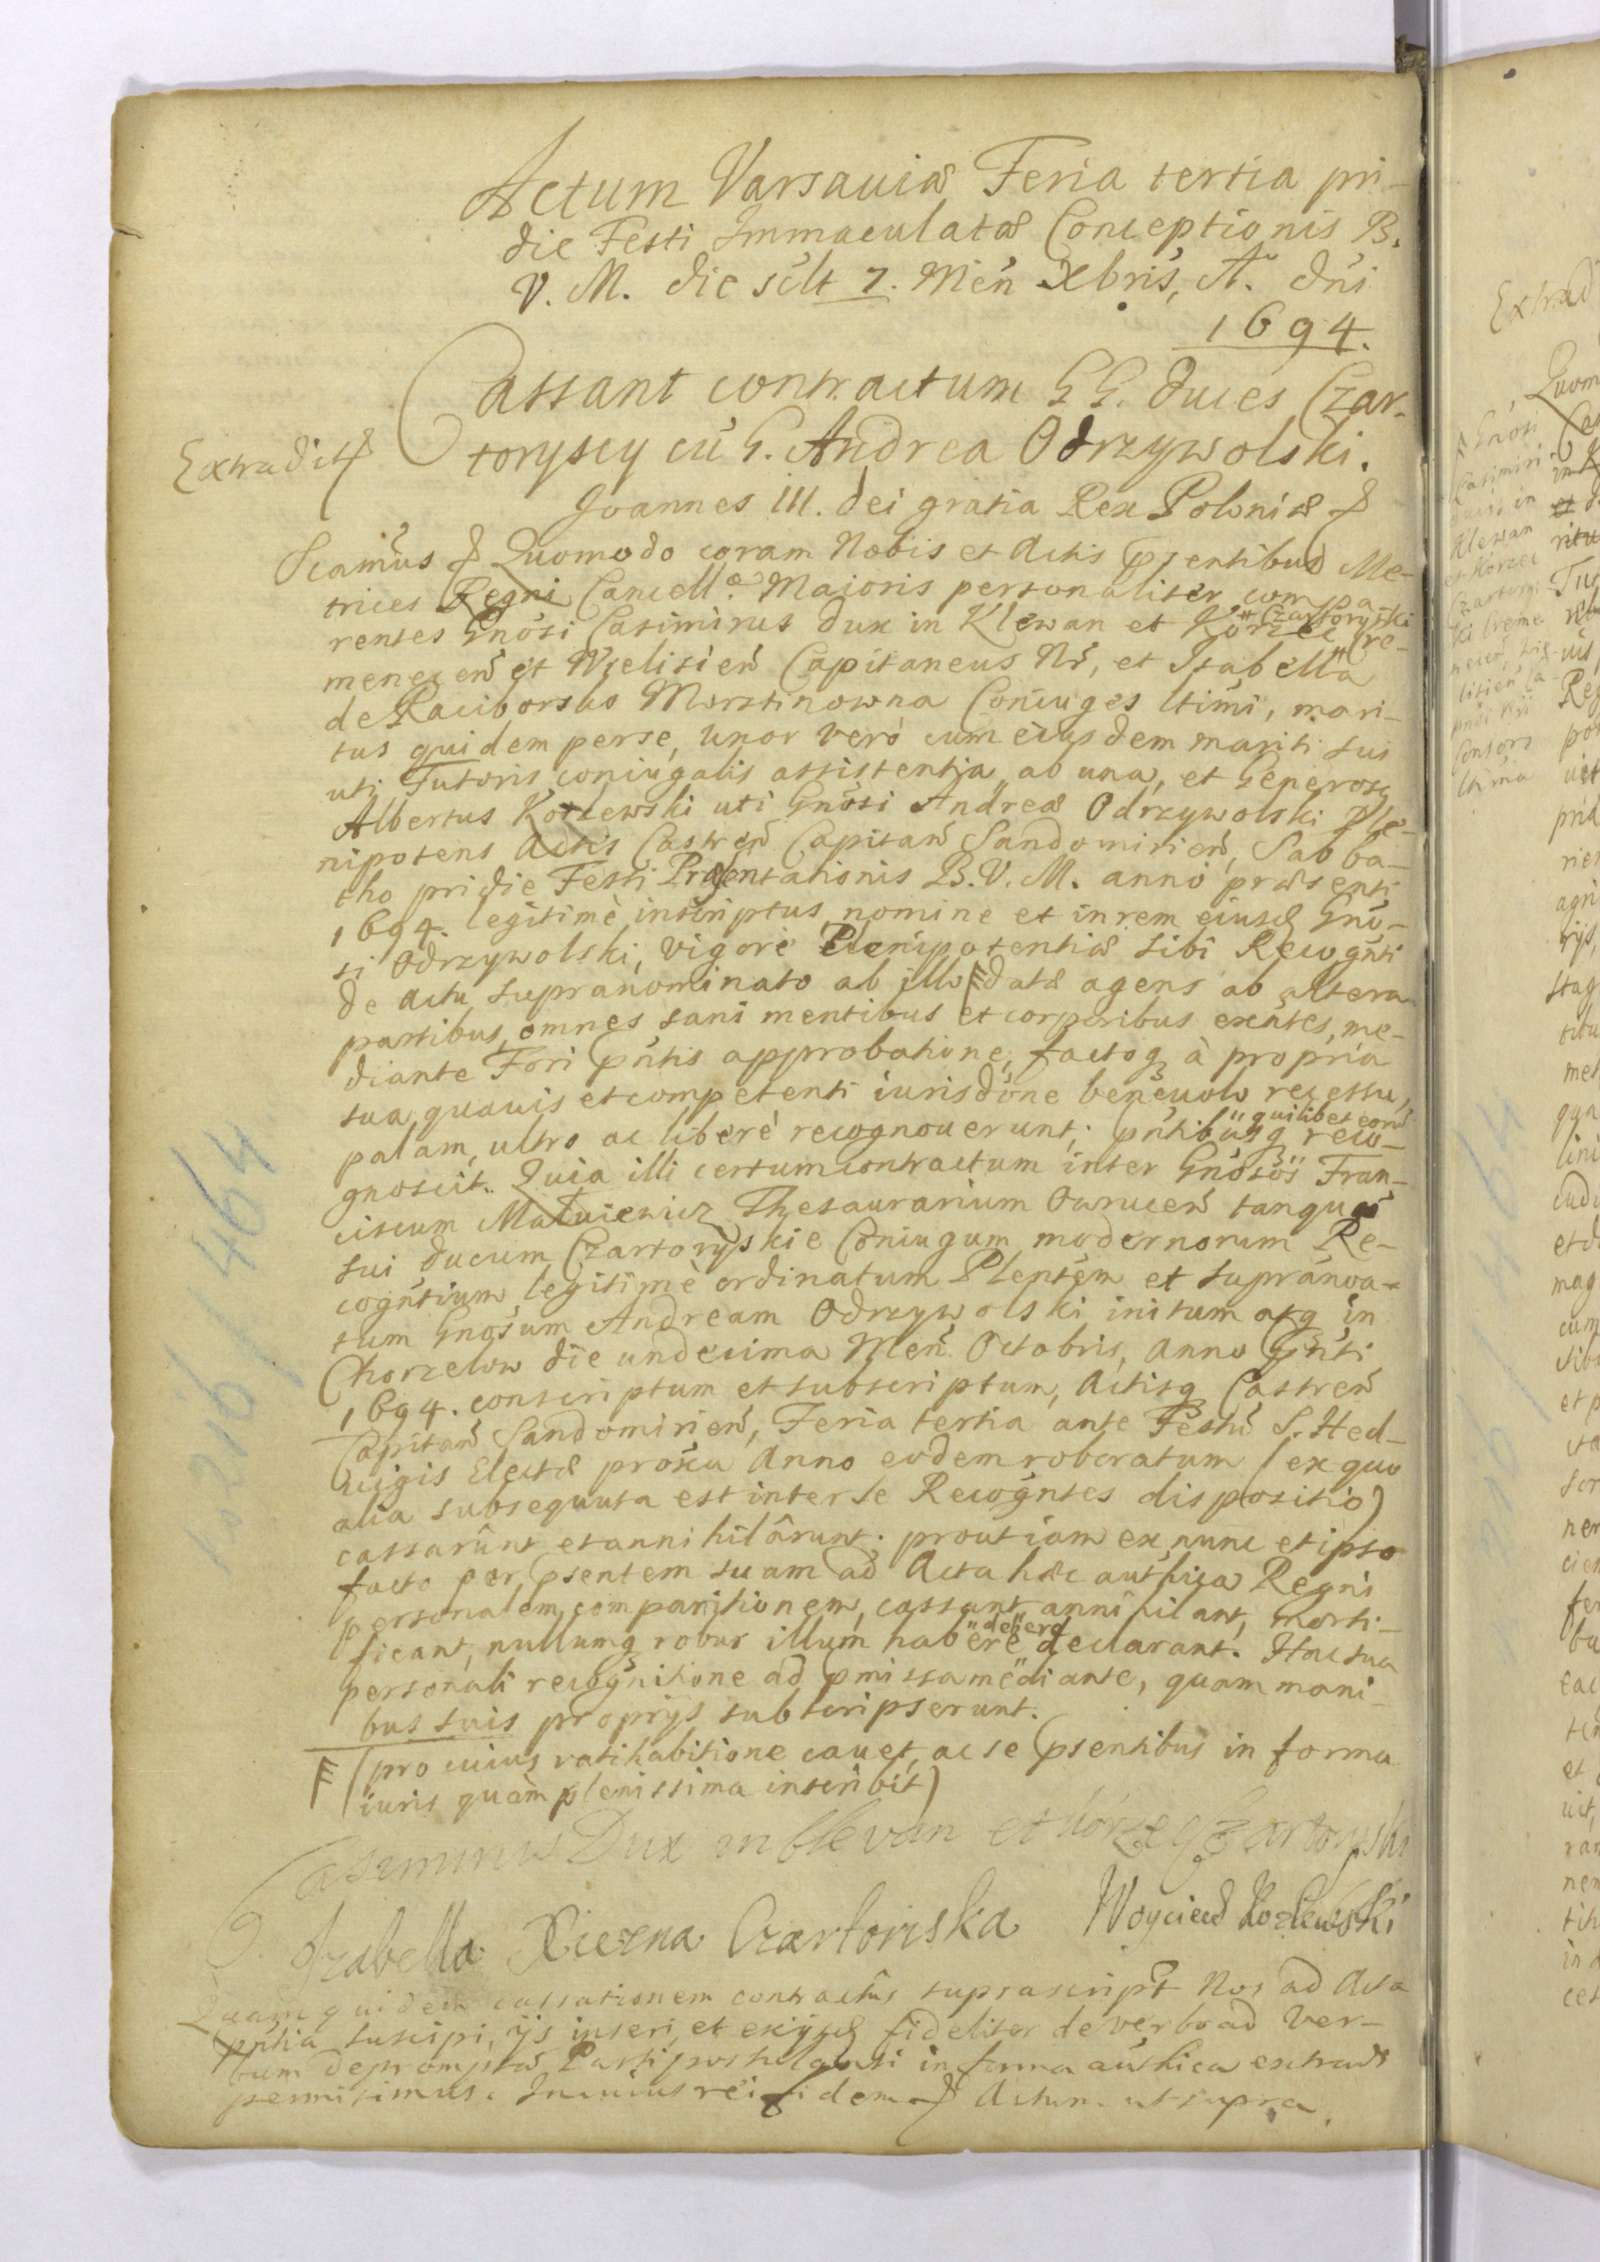 Actum Varsaviæ Feria tertia pri-
die Festi Immaculatæ Conceptionis B.
V. M. die sclt 7. Men Xbris, A. dni
1694.
Cassant contractum GG. duces Czar-
toryscy cu G. Andrea Odrzywolski.
Extradit
Joannes III. dei gratia Rex Poloniæ
Scimus Quomodo coram Nobis et Actis psentibus Me-
trices Regni Cancell. Maioris personaliter compa-
rentes Gnosi Casimirus dux in Klewan et Korzec Czartoryski Cre-
menecen et Wielisien Capitaneus Nr, et Isabella
de Raciborsko Morstinowna Coniuges ltimi, mari-
tus quidem per se, uxor verò cum eiusdem mariti sui
uti Tutoris coniugalis assistentia ab una, et Generosq
Albertus Kozlewski uti Gnosi Andreæ Odrzywolski Ple-
nipotens Actis Castren Capitan Sandomirien, Sabba-
tho pridie Festi Præsentationis B. V. M. anno præsenti
1694. legitimè inscriptus nomine et in rem eiusd Gno-
si Odrzywolski, vigore Plenipotentiæ sibi Recognti
de actu supranominato ab illo datæ agens ab altera
partibus, omnes sani mentibus et corporibus exntes, me-
diante Fori pntis approbatione, factoq à propria
sua, quavis et competenti iurisdone benevolo recessu,
palam, ultro ac liberè recognoverunt, pntibusq quilibet eorum reco-
gnoscit. Quia illi certum contractum inter Gnosos Fran-
ciscum Matuiewicz Thesaurarium Owrucen tanquam
sui ducum Czartoryskie Coniugum modernorum Re-
cogntium legitimè ordinatum Plentem et supranoa-
tum Gnosum Andream Odrzywolski initum atq in
Chorzelow die undecima Men Octobris, Anno pnti
1694. conscriptum et subscriptum, Actisq Castren
Capitan Sandomirien, Feria tertia ante Festu S. Hed-
vigis Electæ proxa Anno eodem roboratum (ex quo
alia subsequuta est inter se Recogntes dispositio)
cassarunt et annihilârunt. prout iam ex nunc et ipso
facto per psentem suam ad Acta hæc authica Regni
personalem comparitionem, cassant annihilant, morti-
ficant, nullumq robur illum habere debere declarant. Hac sua
personali recognitione ad pmissa mediante, quam mani-
bus suis proprijs subscripserunt.
(pro cuius ratihabitione cavet, ac se psentibus in forma
iuris quàm plenissima inscribit)
Casimirus Dux in Klevan et Korzec Czartoryski
Izabella Xiezna Czartoriska Woyciech Kozlewski
Quam quidem cassationem contractus suprascript Nos ad Acta
pntia suscipi, ijs inseri, et exijsd fideliter de verbo ad ver-
bum depromptam Parti postulanti in forma authica extradi
permisimus. In cuius rei fidem Actum ut supra.